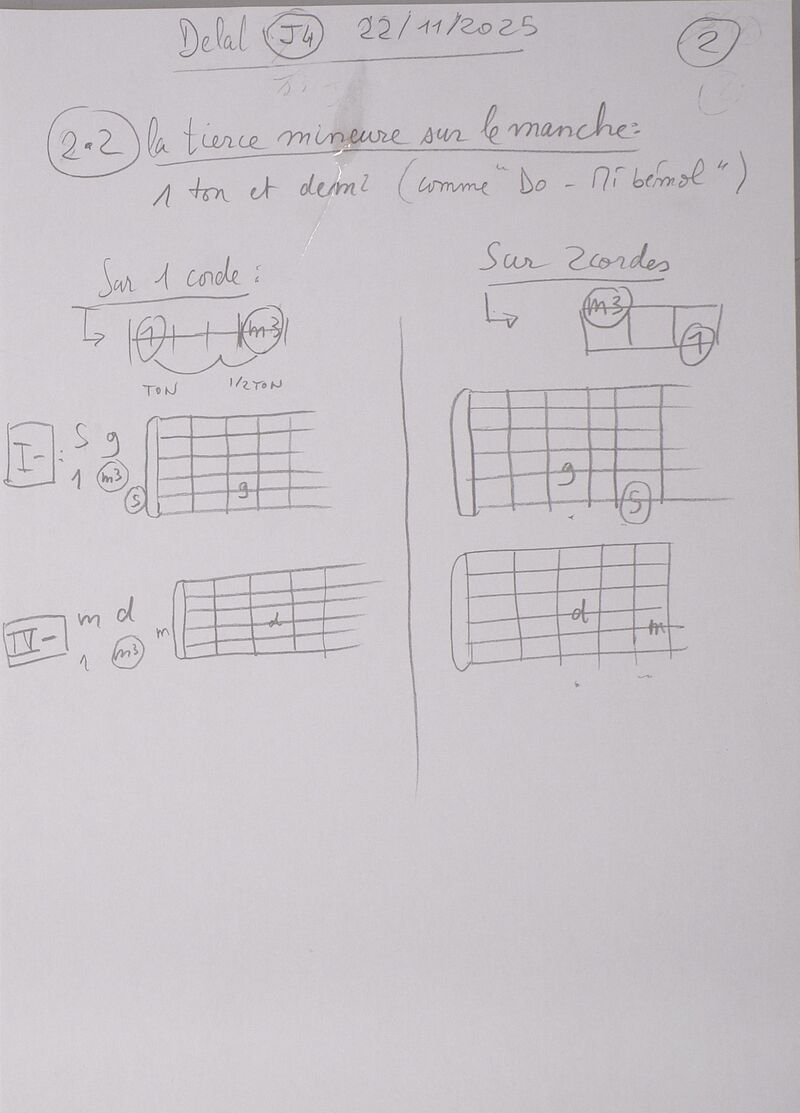 Delal J4 22/11/2025
2
2.2 la tierce mineure sur le manche:
1 ton et demi (comme "Do - Mi bémol")
Sur 1 corde:
1 m3
TON 1/2 TON
Sur 2 cordes
m3
1
I- : S g
1 m3
S
g
g
S
IV- m d
1 m3
m
d
d
m